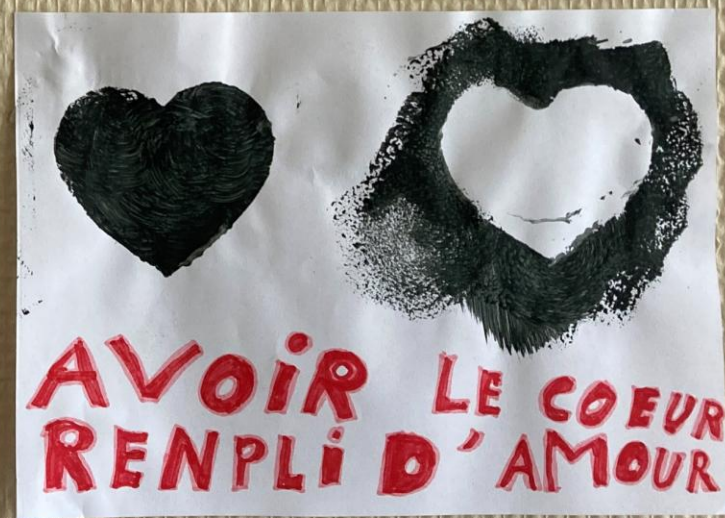 AVOiR LE COEUR
RENPLi D'AMOUR